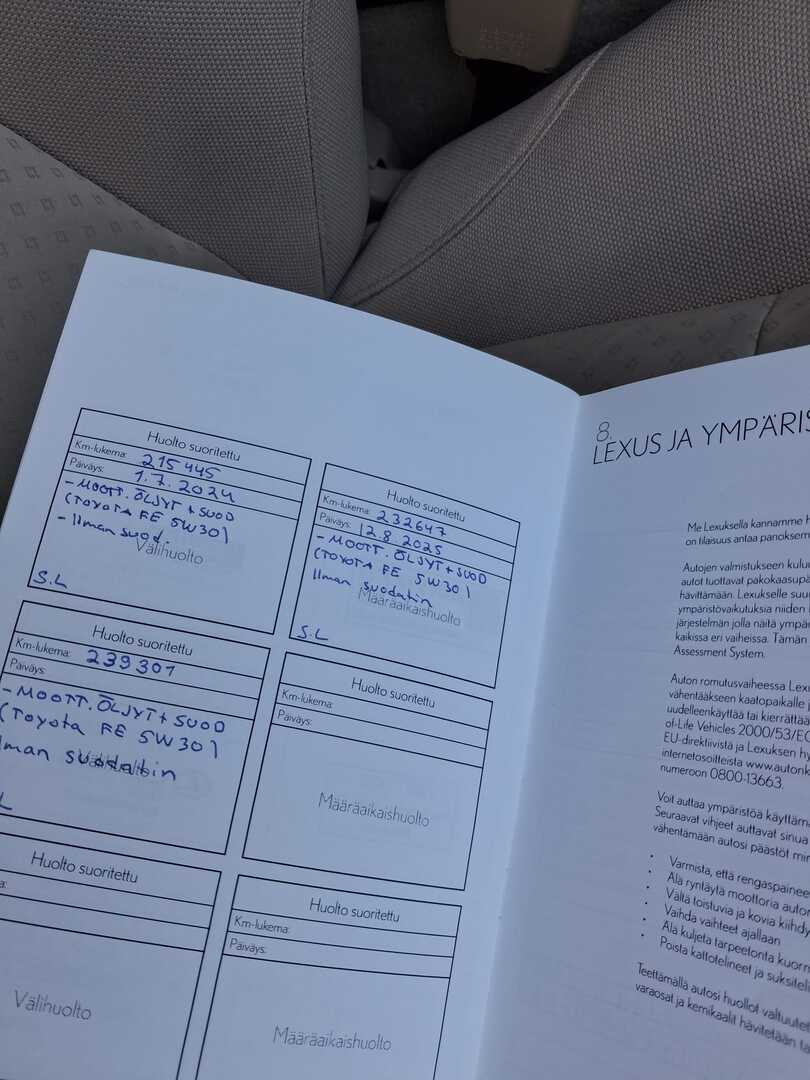 Huolto suoritettu
Km-lukema: 215 445
Päiväys: 1.7.2024
- MOOTT. ÖLJYT + SUOD
(TOYOTA FE 5W30)
- Ilman suod.
Välihuolto
S.L
Huolto suoritettu
Km-lukema: 232647
Päiväys: 12.8.2025
- MOOTT. ÖLJYT + SUOD
(TOYOTA FE 5W30)
Ilman suodatin
Määräaikaishuolto
S.L
Huolto suoritettu
Km-lukema: 239301
Päiväys:
- MOOTT. ÖLJYT + SUOD
(TOYOTA FE 5W30)
Ilman suodatin
Välihuolto
L
Huolto suoritettu
Km-lukema:
Päiväys:
Määräaikaishuolto
Huolto suoritettu
a:
Välihuolto
Huolto suoritettu
Km-lukema:
Päiväys:
Määräaikaishuolto
8.
LEXUS JA YMPÄRIS
Me Lexuksella kannamme
on tilaisuus antaa panoksem
Autojen valmistukseen kulu
autot tuottavat pakokaasupä
hävittämään. Lexukselle suu
ympäristövaikutuksia niiden
järjestelmän jolla näitä ympär
kaikissa eri vaiheissa. Tämän
Assessment System.
Auton romutusvaiheessa Lex
vähentääkseen kaatopaikalle j
uudelleenkäyttää tai kierrättää
of-Life Vehicles 2000/53/EC
EU-direktiivistä ja Lexuksen hy
internetosoitteista www.autonk
numeroon 0800-13663.
Voit auttaa ympäristöä käyttämä
Seuraavat vihjeet auttavat sinua
vähentämään autosi päästöt min
• Varmista, että rengaspainee
• Älä ryntäytä moottoria auton
• Vältä toistuvia ja kovia kiihdy
• Vaihda vaihteet ajallaan
• Älä kuljeta tarpeetonta kuorm
• Poista kattotelineet ja suksiteli
Teettämällä autosi huollot valtuutet
varaosat ja kemikaalit hävitetään ta